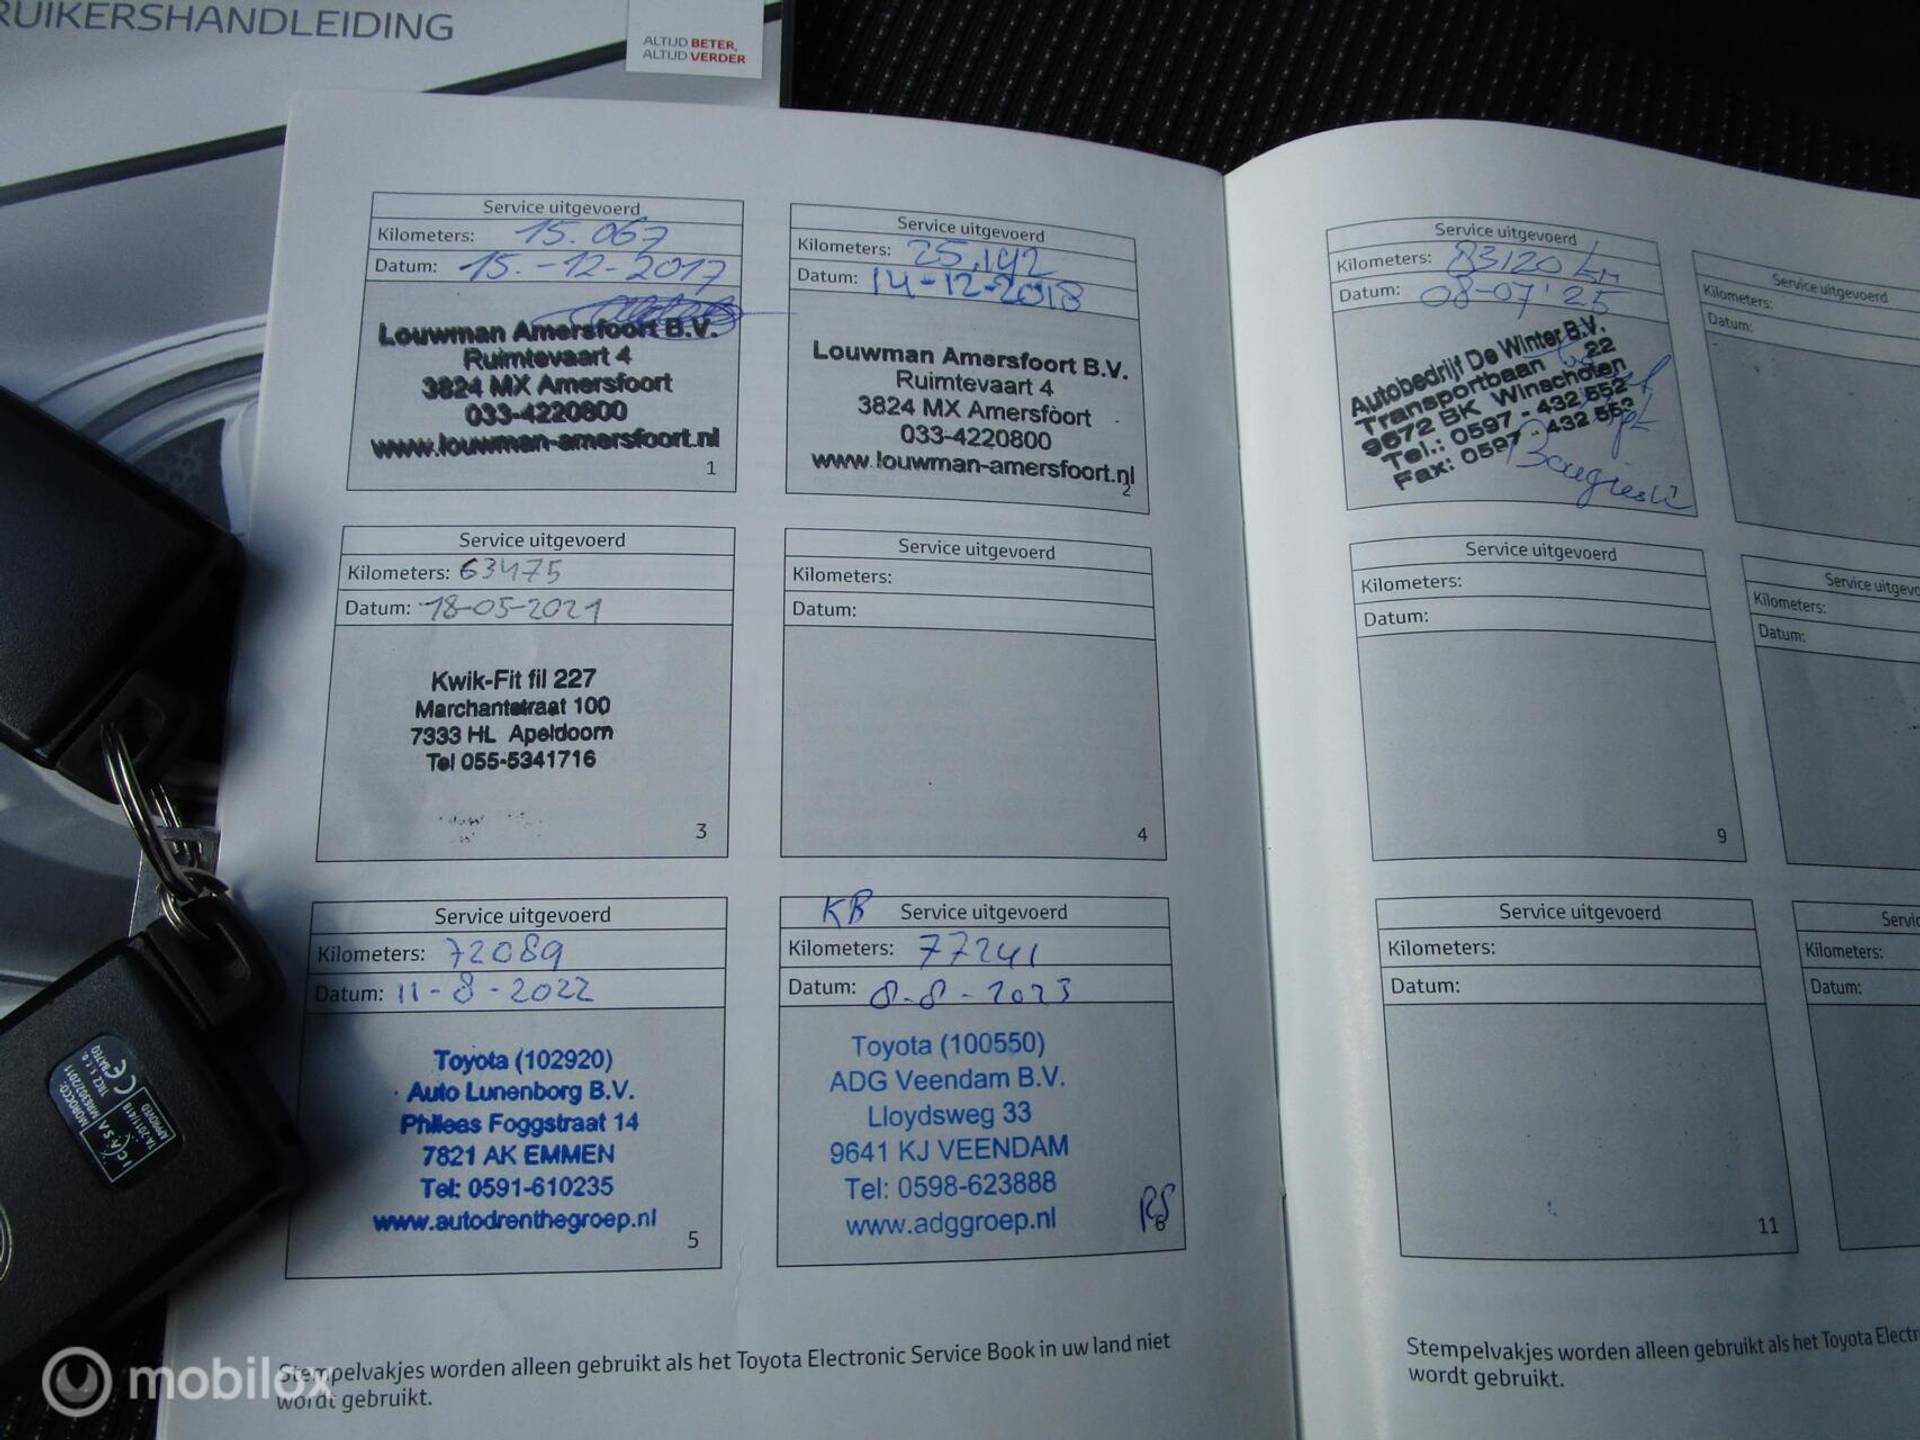 RUIKERSHANDLEIDING
ALTIJD BETER,
ALTIJD VERDER
Service uitgevoerd
Kilometers: 15.067
Datum: 15.-12-2017
Louwman Amersfoort B.V.
Ruimtevaart 4
3824 MX Amersfoort
033-4220800
www.louwman-amersfoort.nl
1
Service uitgevoerd
Kilometers: 25.142
Datum: 14-12-2018
Louwman Amersfoort B.V.
Ruimtevaart 4
3824 MX Amersfoort
033-4220800
www.louwman-amersfoort.nl
2
Service uitgevoerd
Kilometers: 63475
Datum: 18-05-2021
Kwik-Fit fil 227
Marchantstraat 100
7333 HL Apeldoorn
Tel 055-5341716
3
Service uitgevoerd
Kilometers:
Datum:
4
Service uitgevoerd
Kilometers: 72089
Datum: 11-8-2022
Toyota (102920)
Auto Lunenborg B.V.
Phileas Foggstraat 14
7821 AK EMMEN
Tel: 0591-610235
www.autodrenthegroep.nl
5
KB Service uitgevoerd
Kilometers: 77241
Datum: 8-8-2023
Toyota (100550)
ADG Veendam B.V.
Lloydsweg 33
9641 KJ VEENDAM
Tel: 0598-623888
www.adggroep.nl
RS
6
Stempelvakjes worden alleen gebruikt als het Toyota Electronic Service Book in uw land niet
wordt gebruikt.
Service uitgevoerd
Kilometers: 83120 km
Datum: 08-07'25
Autobedrijf De Winter B.V.
Transportbaan 22
9672 BK Winschoten
Tel.: 0597 - 432 552
Fax: 0597 - 432 553
Service uitgevoerd
Kilometers:
Datum:
Service uitgevoerd
Kilometers:
Datum:
9
Service uitgevo
Kilometers:
Datum:
Service uitgevoerd
Kilometers:
Datum:
11
Servic
Kilometers:
Datum:
Stempelvakjes worden alleen gebruikt als het Toyota Electr
wordt gebruikt.
MOROCCO:
APPROVED
mobilox